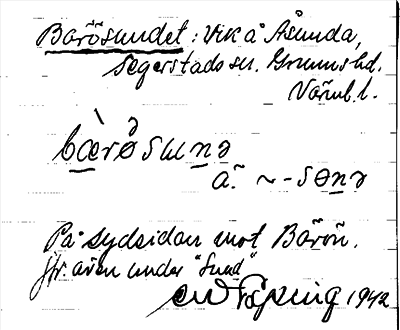 Barösundet: Vik å Åsunda,
Segerstads sn. Grums hd.
Värml. l.
bæ̀røsunə
ä. ~-sɵnə
På sydsidan mot Barön.
Jfr. även under "Sund"
1942